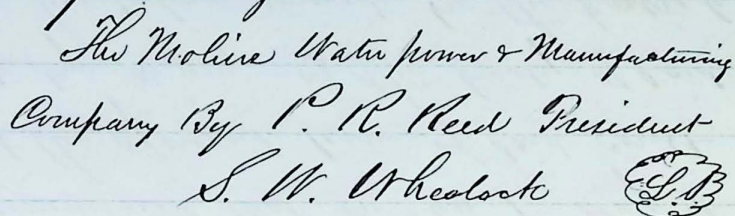 The Moline Water power & Manufacturing
Company By P. R. Reed President
S. W. Wheelock L.S.